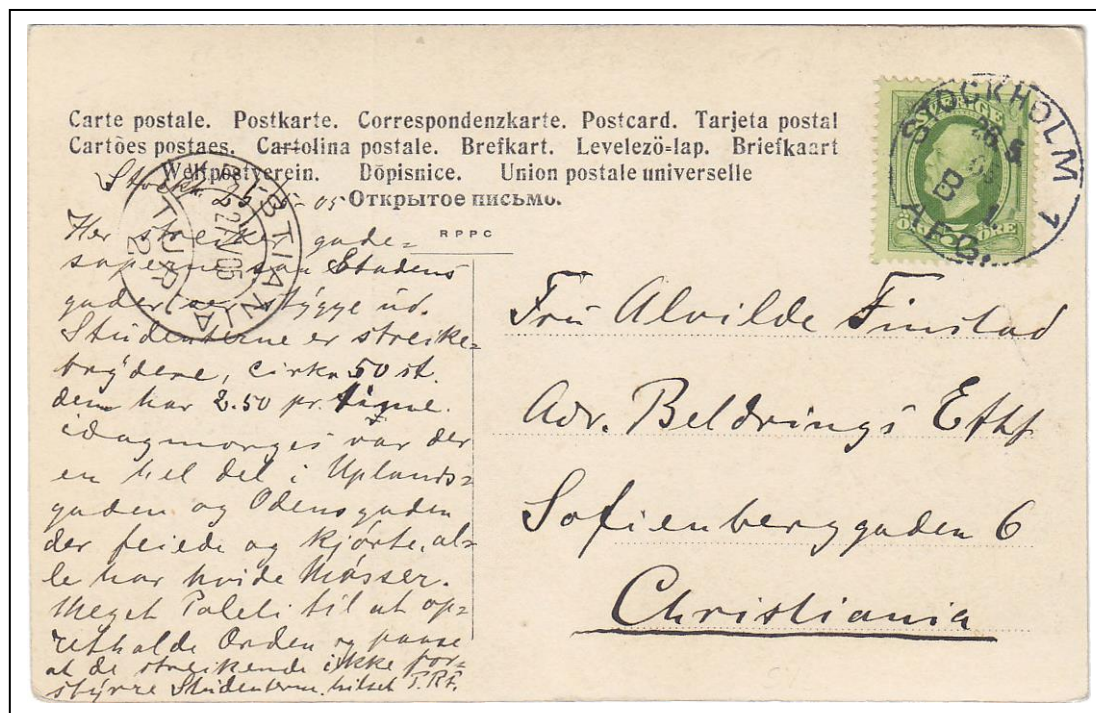 Carte postale. Postkarte. Correspondenzkarte. Postcard. Tarjeta postal
Cartões postaes. Cartolina postale. Brefkart. Levelező-lap. Briefkaart
Weltpostverein. Dōpisnice. Union postale universelle
Открытое письмо.
RPPC
STOCKHOLM 1
26.5.
B 1.
A.F.G.
ÖRE
KR-BTIANIA
27 V 05
TUR 2
05
Her streiker gade=
saa Stadens
gader ser stygge ud.
Studenterne er streike=
brydere, cirka 50 st.
dem har 2.50 pr. time.
idagmorges var der
en hel del i Uplands=
gaden og Odensgaden
der feiede og kjørte, al=
le har hvide Hüsser.
Meget Politi til at op=
retholde Orden og paase
at de streikende ikke for=
styrre Studenterne. hilset
Fru Alvilde Finstad
Adr. Beldrings Eftf
Sofienberggaden 6
Christiania